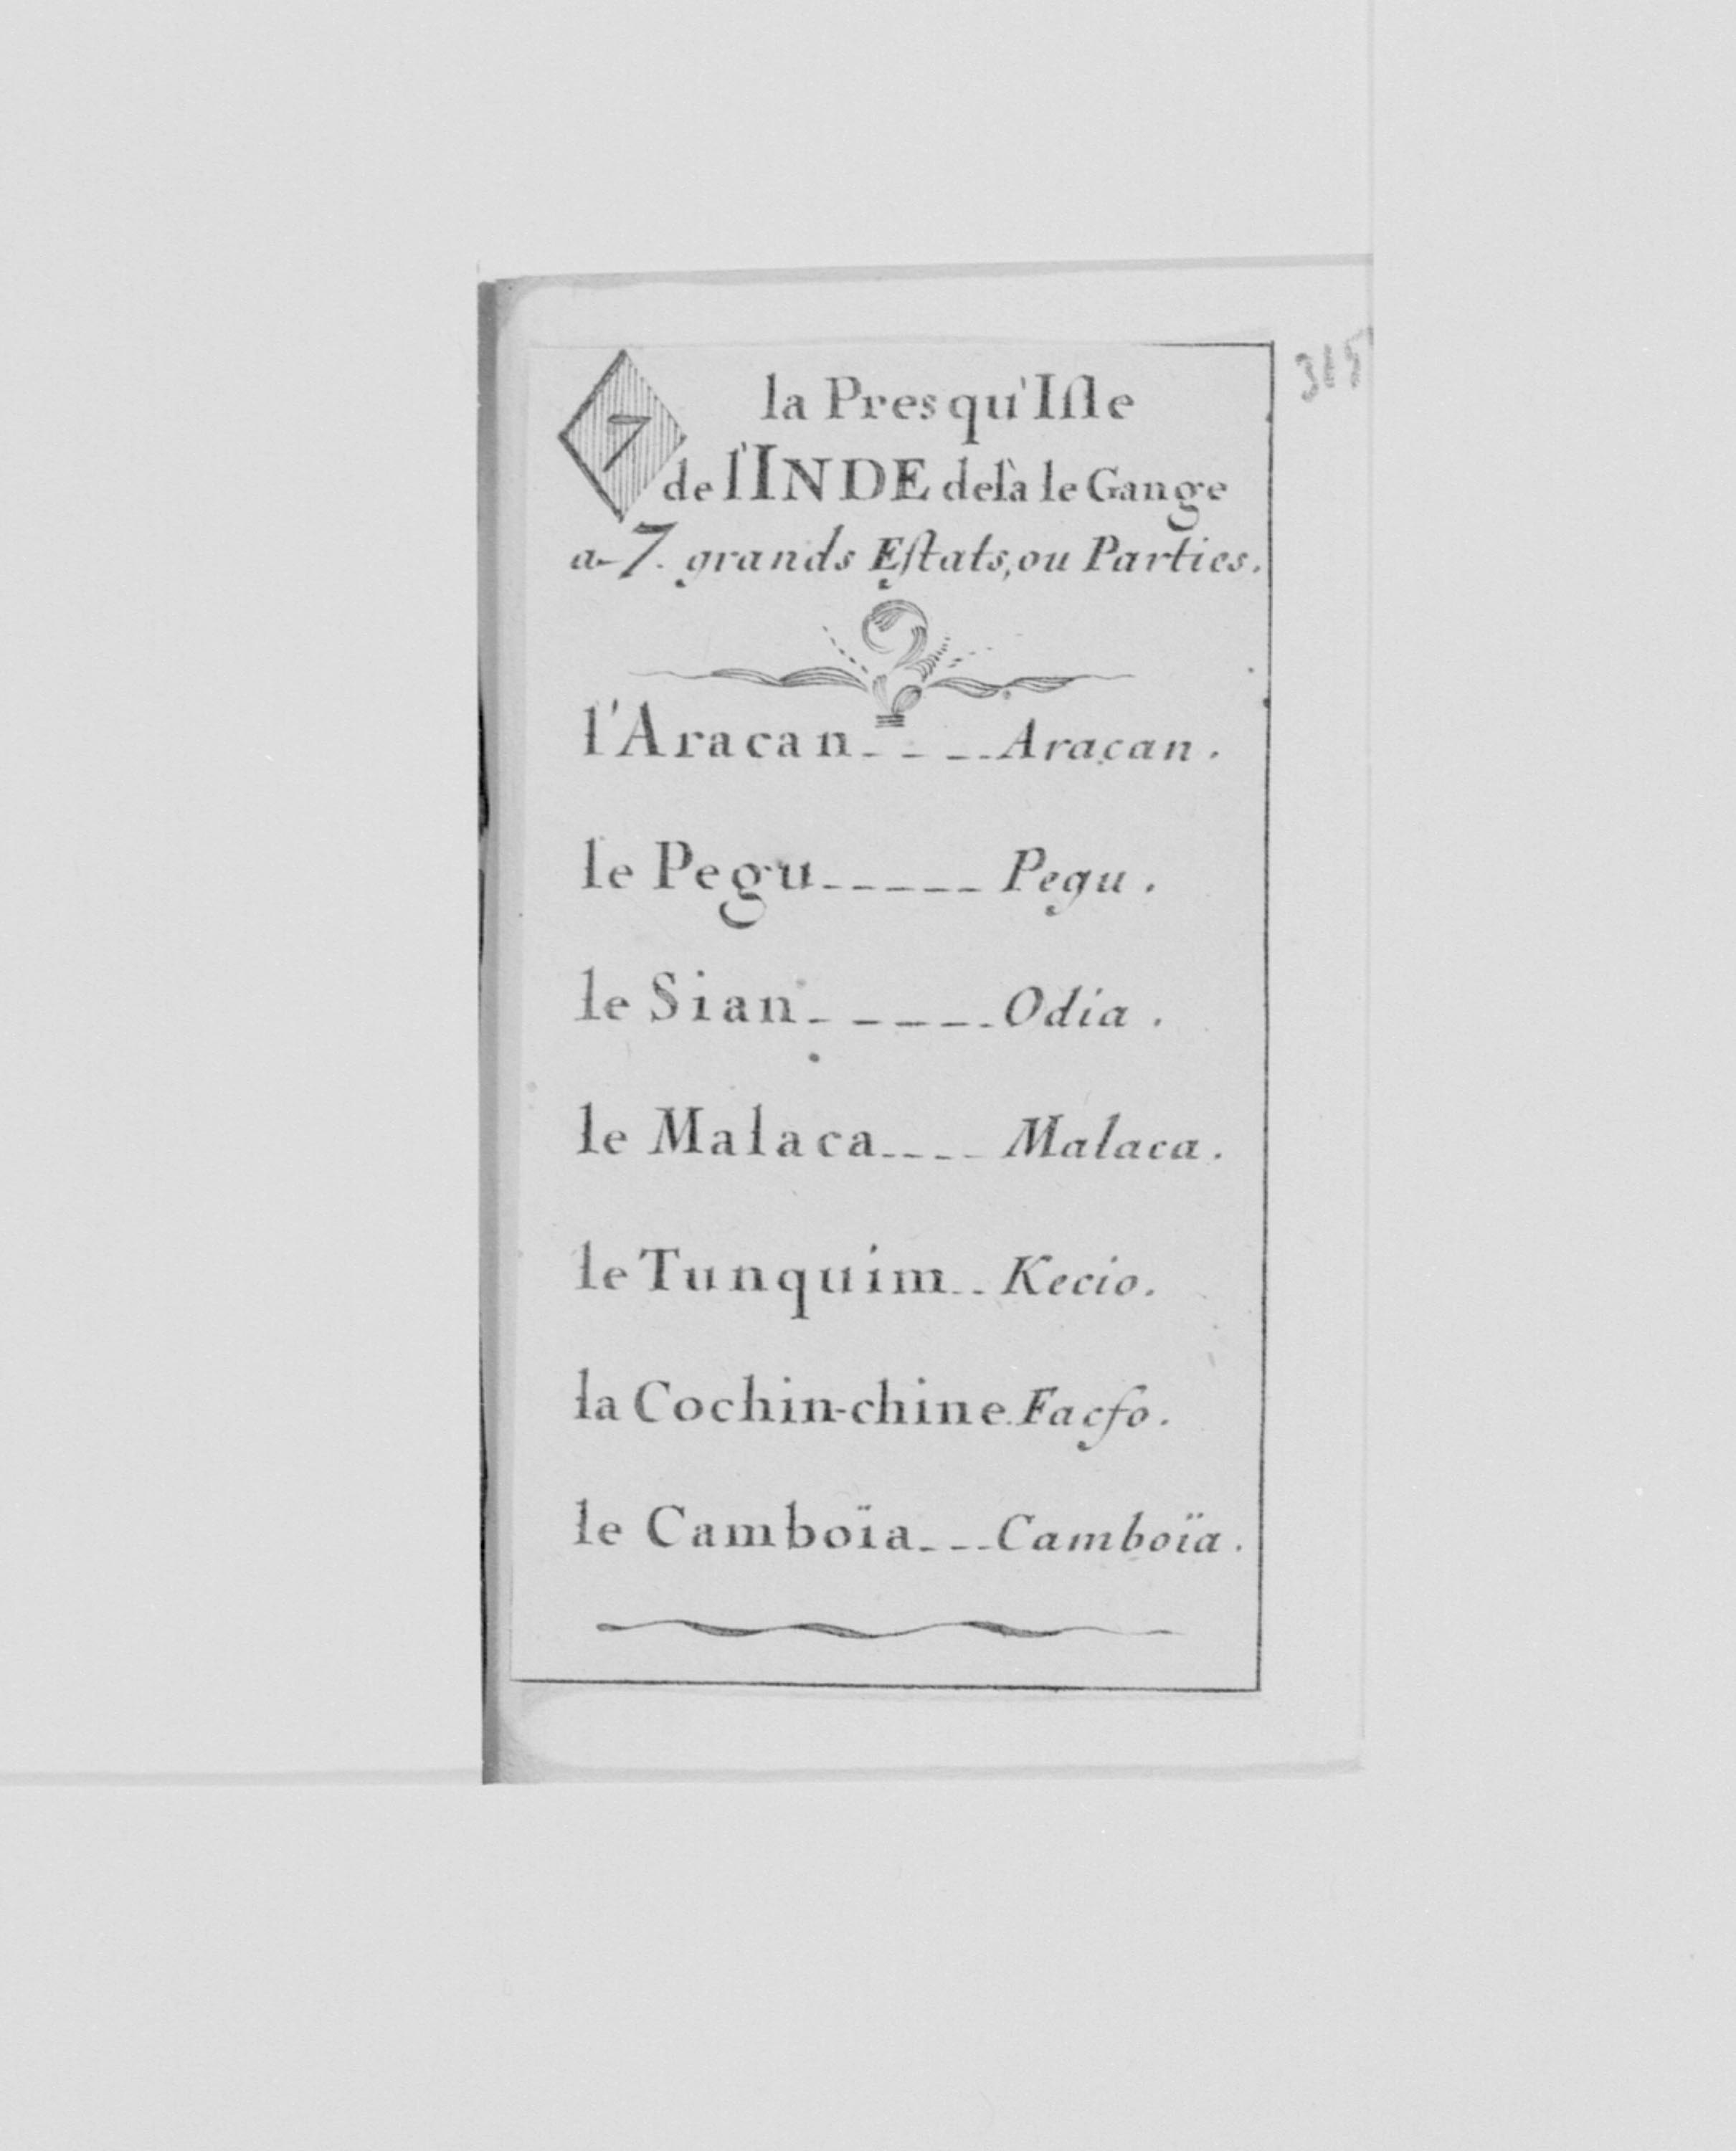 315
7
la Presqu'Iſle
de l'INDE delà le Gange
a 7. grands Eſtats, ou Parties.
l'Aracan - - - - Aracan.
le Pegu - - - - - Pegu.
le Sian - - - - - Odia.
le Malaca - - - - Malaca.
le Tunquim - - Kecio.
la Cochin-chine. Facſo.
le Camboïa - - - Camboïa.